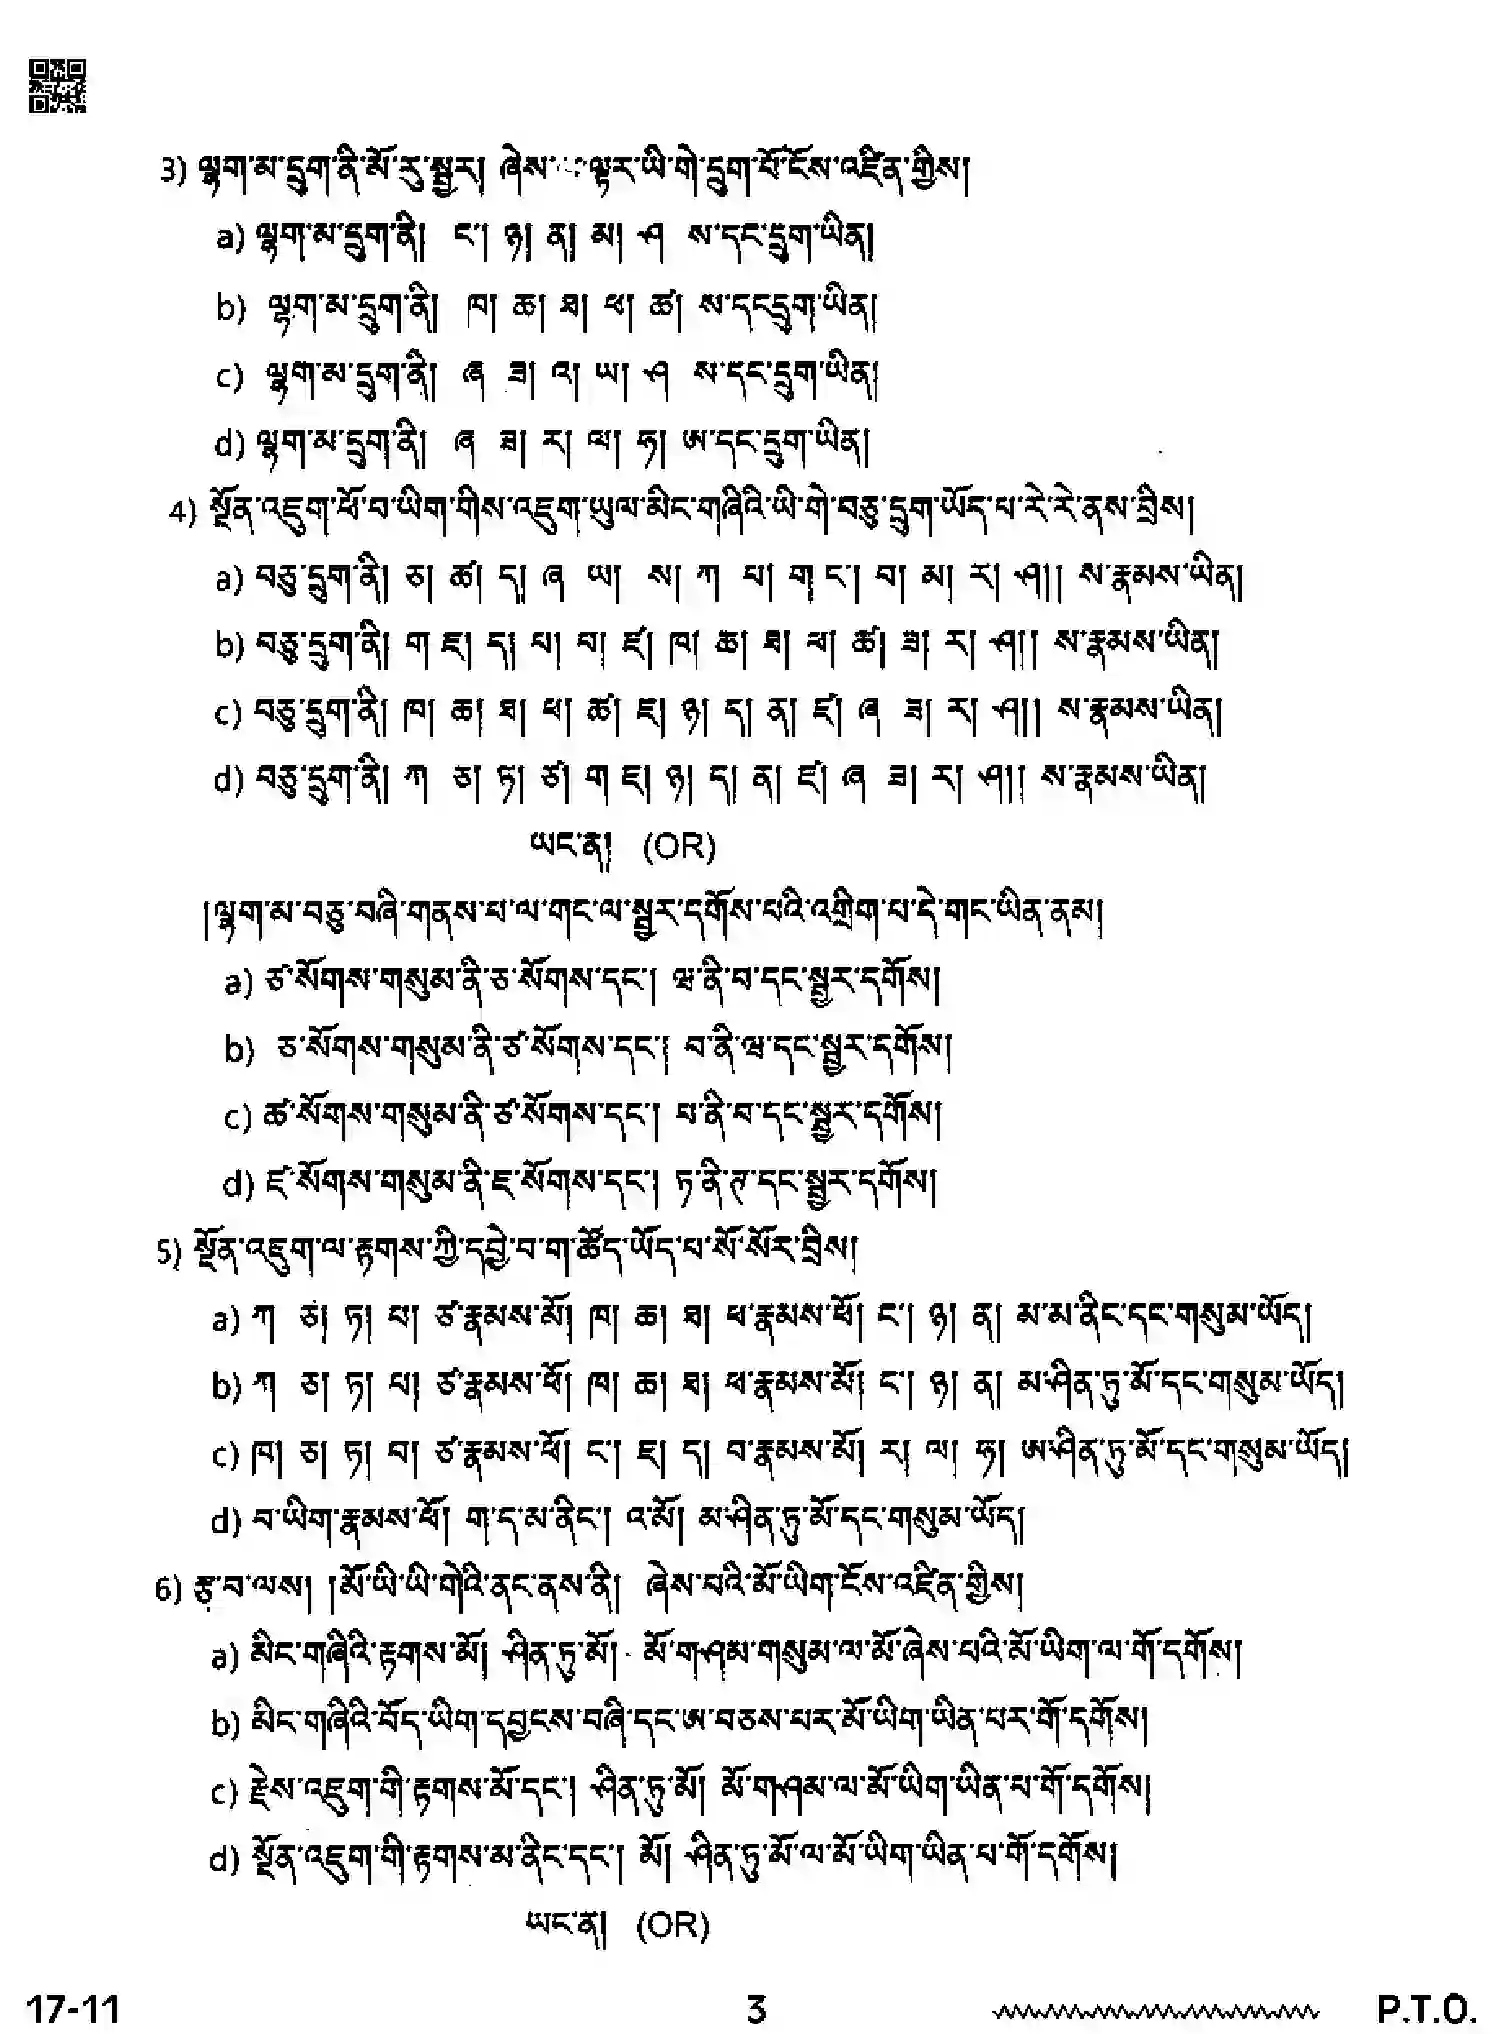 3) ལྷག་མ་དྲུག་ནི་མོ་རུ་སྦྱར། ཞེས་ ལྟར་ཡི་གེ་དྲུག་པོ་ངོས་འཛིན་གྱིས།
a) ལྷག་མ་དྲུག་ནི། ང་། ཉ། ན། མ། ཤ ས་དང་དྲུག་ཡིན།
b) ལྷག་མ་དྲུག་ནི། ཁ། ཆ། ཐ། ཕ། ཚ། ས་དངདྲུག་ཡིན།
c) ལྷག་མ་དྲུག་ནི། ཞ ཟ། འ། ཡ། ཤ ས་དང་དྲུག་ཡིན།
d) ལྷག་མ་དྲུག་ནི། ཞ ཟ། ར། ལ། ཧ། ཨ་དང་དྲུག་ཡིན།
4) སྔོན་འཇུག་ཕོ་བ་ཡིག་གིས་འཇུག་ཡུལ་མིང་གཞིའི་ཡི་གེ་བཅུ་དྲུག་ཡོད་པ་རེ་རེ་ནས་བྲིས།
a) བཅུ་དྲུག་ནི། ཅ། ཚ། ད། ཞ ཡ། ས། ཀ པ། ག ང་། བ། མ། ར། ཤ།། ས་རྣམས་ཡིན།
b) བཅུ་དྲུག་ནི། ག ཇ། ད། པ། བ། ཛ། ཁ། ཆ། ཐ། ཕ། ཚ། ཟ། ར། ཤ།། ས་རྣམས་ཡིན།
c) བཅུ་དྲུག་ནི། ཁ། ཆ། ཐ། ཕ། ཚ། ཇ། ཉ། ད། ན། ཛ། ཞ ཟ། ར། ཤ།། ས་རྣམས་ཡིན།
d) བཅུ་དྲུག་ནི། ཀ ཅ། ཏ། ཙ། ག ཇ། ཉ། ད། ན། ཛ། ཞ ཟ། ར། ཤ།། ས་རྣམས་ཡིན།
ཡང་ན། (OR)
།ལྷག་མ་བཅུ་བཞི་གནས་པ་ལ་གང་ལ་སྦྱར་དགོས་པའི་འགྲིག་པ་དེ་གང་ཡིན་ནམ།
a) ཙ་སོགས་གསུམ་ནི་ཅ་སོགས་དང་། ཝ་ནི་བ་དང་སྦྱར་དགོས།
b) ཅ་སོགས་གསུམ་ནི་ཙ་སོགས་དང་། བ་ནི་ཝ་དང་སྦྱར་དགོས།
c) ཚ་སོགས་གསུམ་ནི་ཙ་སོགས་དང་། པ་ནི་བ་དང་སྦྱར་དགོས།
d) ཛ་སོགས་གསུམ་ནི་ཇ་སོགས་དང་། ཏ་ནི་ཊ་དང་སྦྱར་དགོས།
5) སྔོན་འཇུག་ལ་རྟགས་ཀྱི་དབྱེ་བ་ག་ཚོད་ཡོད་པ་སོ་སོར་བྲིས།
a) ཀ ཅ། ཏ། པ། ཙ་རྣམས་མོ། ཁ། ཆ། ཐ། ཕ་རྣམས་ཕོ། ང་། ཉ། ན། མ་མ་ནིང་དང་གསུམ་ཡོད།
b) ཀ ཅ། ཏ། པ། ཙ་རྣམས་ཕོ། ཁ། ཆ། ཐ། ཕ་རྣམས་མོ། ང་། ཉ། ན། མ་ཤིན་ཏུ་མོ་དང་གསུམ་ཡོད།
c) ཁ། ཅ། ཏ། བ། ཙ་རྣམས་ཕོ། ང་། ཇ། ད། བ་རྣམས་མོ། ར། ལ། ཧ། ཨ་ཤིན་ཏུ་མོ་དང་གསུམ་ཡོད།
d) བ་ཡིག་རྣམས་ཕོ། ག་ད་མ་ནིང་། འ་མོ། མ་ཤིན་ཏུ་མོ་དང་གསུམ་ཡོད།
6) རྩ་བ་ལས། །མོ་ཡི་ཡི་གེའི་ནང་ནས་ནི། ཞེས་པའི་མོ་ཡིག་ངོས་འཛིན་གྱིས།
a) མིང་གཞིའི་རྟགས་མོ། ཤིན་ཏུ་མོ། མོ་གཤམ་གསུམ་ལ་མོ་ཞེས་པའི་མོ་ཡིག་ལ་གོ་དགོས།
b) མིང་གཞིའི་བོད་ཡིག་དབྱངས་བཞི་དང་ཨ་བཅས་པར་མོ་ཡིག་ཡིན་པར་གོ་དགོས།
c) རྗེས་འཇུག་གི་རྟགས་མོ་དང་། ཤིན་ཏུ་མོ། མོ་གཤམ་ལ་མོ་ཡིག་ཡིན་པ་གོ་དགོས།
d) སྔོན་འཇུག་གི་རྟགས་མ་ནིང་དང་། མོ། ཤིན་ཏུ་མོ་ལ་མོ་ཡིག་ཡིན་པ་གོ་དགོས།
ཡང་ན། (OR)
17-11 3 P.T.O.